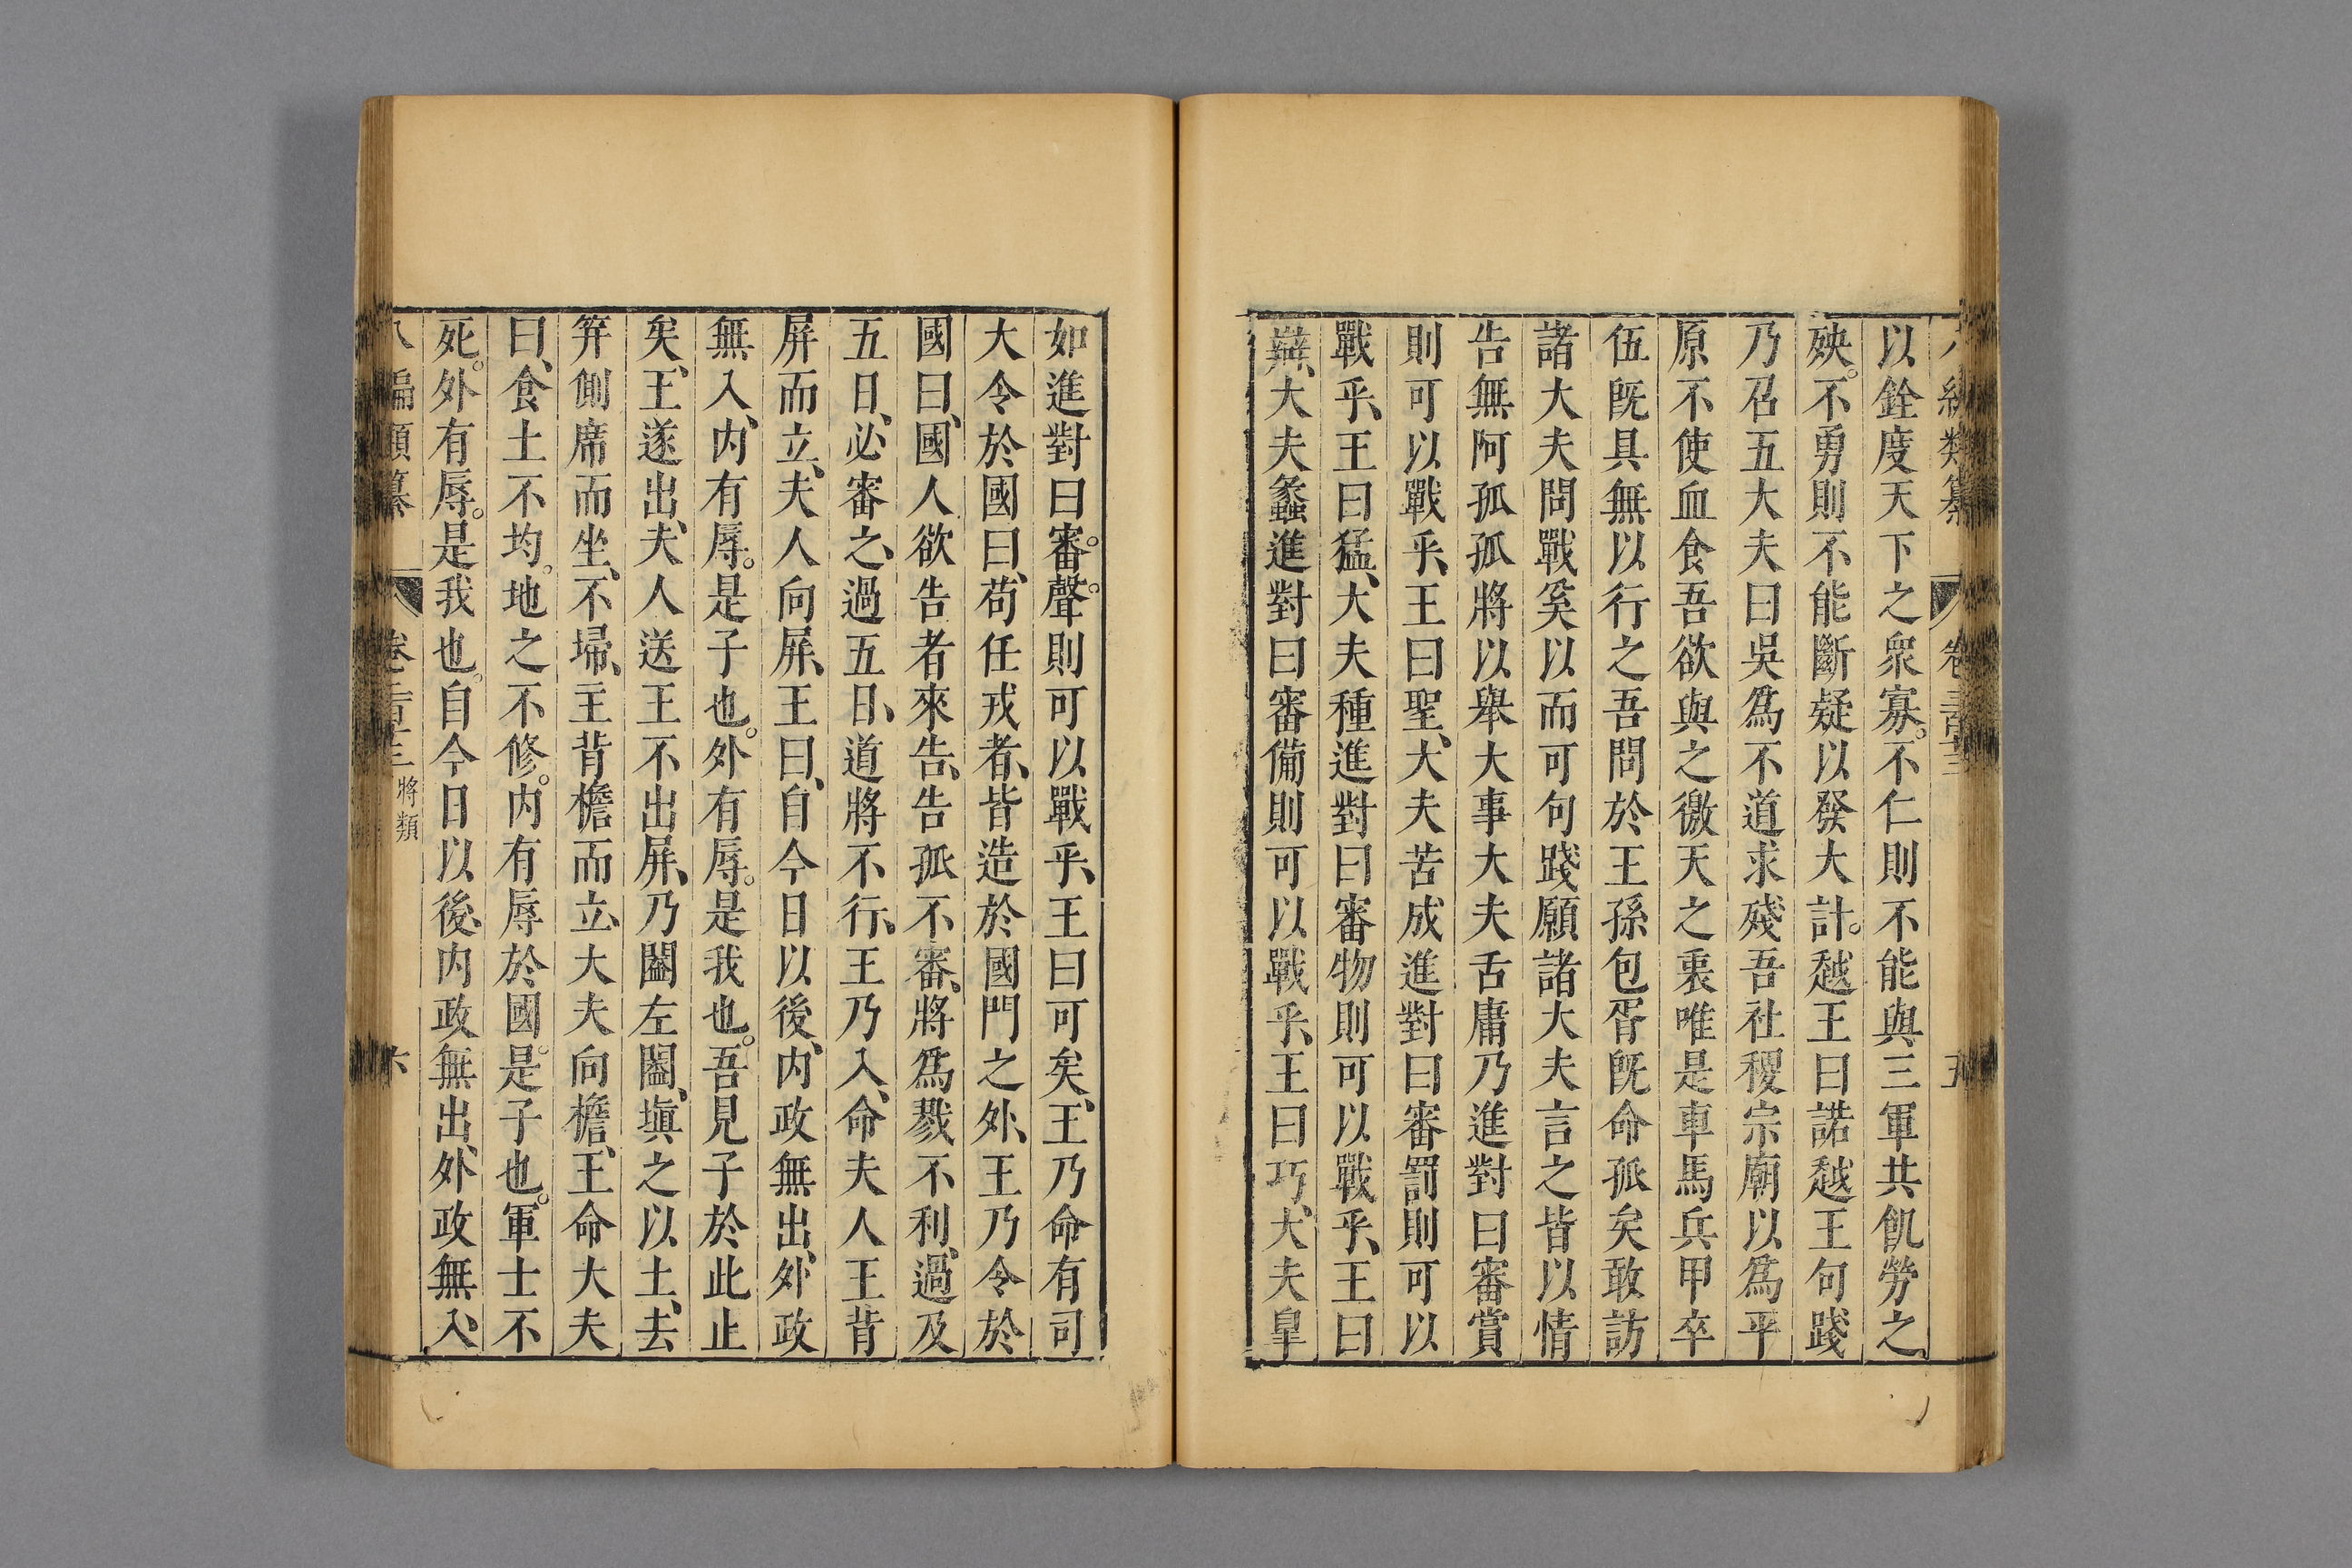 類纂
以銓度天下之衆寡。不仁則不能與三軍共飢勞之
殃。不勇則不能斷疑以發大計。越王曰諾越王句踐
乃召五大夫曰吳爲不道求殘吾社稷宗廟以爲平
原不使血食吾欲與之徼天之衷唯是車馬兵甲卒
伍旣具無以行之吾問於王孫包胥旣命孤矣敢訪
諸大夫問戰奚以而可句踐願諸大夫言之皆以情
告無阿孤孤將以舉大事大夫舌庸乃進對曰審賞
則可以戰乎、王曰聖、大夫苦成進對曰審罰則可以
戰乎、王曰猛、大夫種進對曰審物則可以戰乎、王曰
辯、大夫蠡進對曰審備則可以戰乎、王曰巧、大夫皐
如進對曰審。聲。則可以戰乎、王曰可矣、王乃命有司
大令於國曰、苟任戎者、皆造於國門之外、王乃令於
國曰、國人欲告者來告、告孤不審、將爲戮不利、過及
五日、必審之、過五日、道將不行、王乃入、命夫人王背
屏而立、夫人向屏、王曰、自今日以後、内政無出、外政
無入、内有辱。是子也。外有辱。是我也。吾見子於此止
矣、王遂出、夫人送王不出屏、乃闔左闔、塡之以土、去
笄側席而坐、不埽、主背檐而立、大夫向檐、王命大夫
曰、食土不均。地之不修。内有辱於國。是子也。軍士不
死。外有辱。是我也。自今日以後、内政無出、外政無入、
八編類纂 卷 將類 六